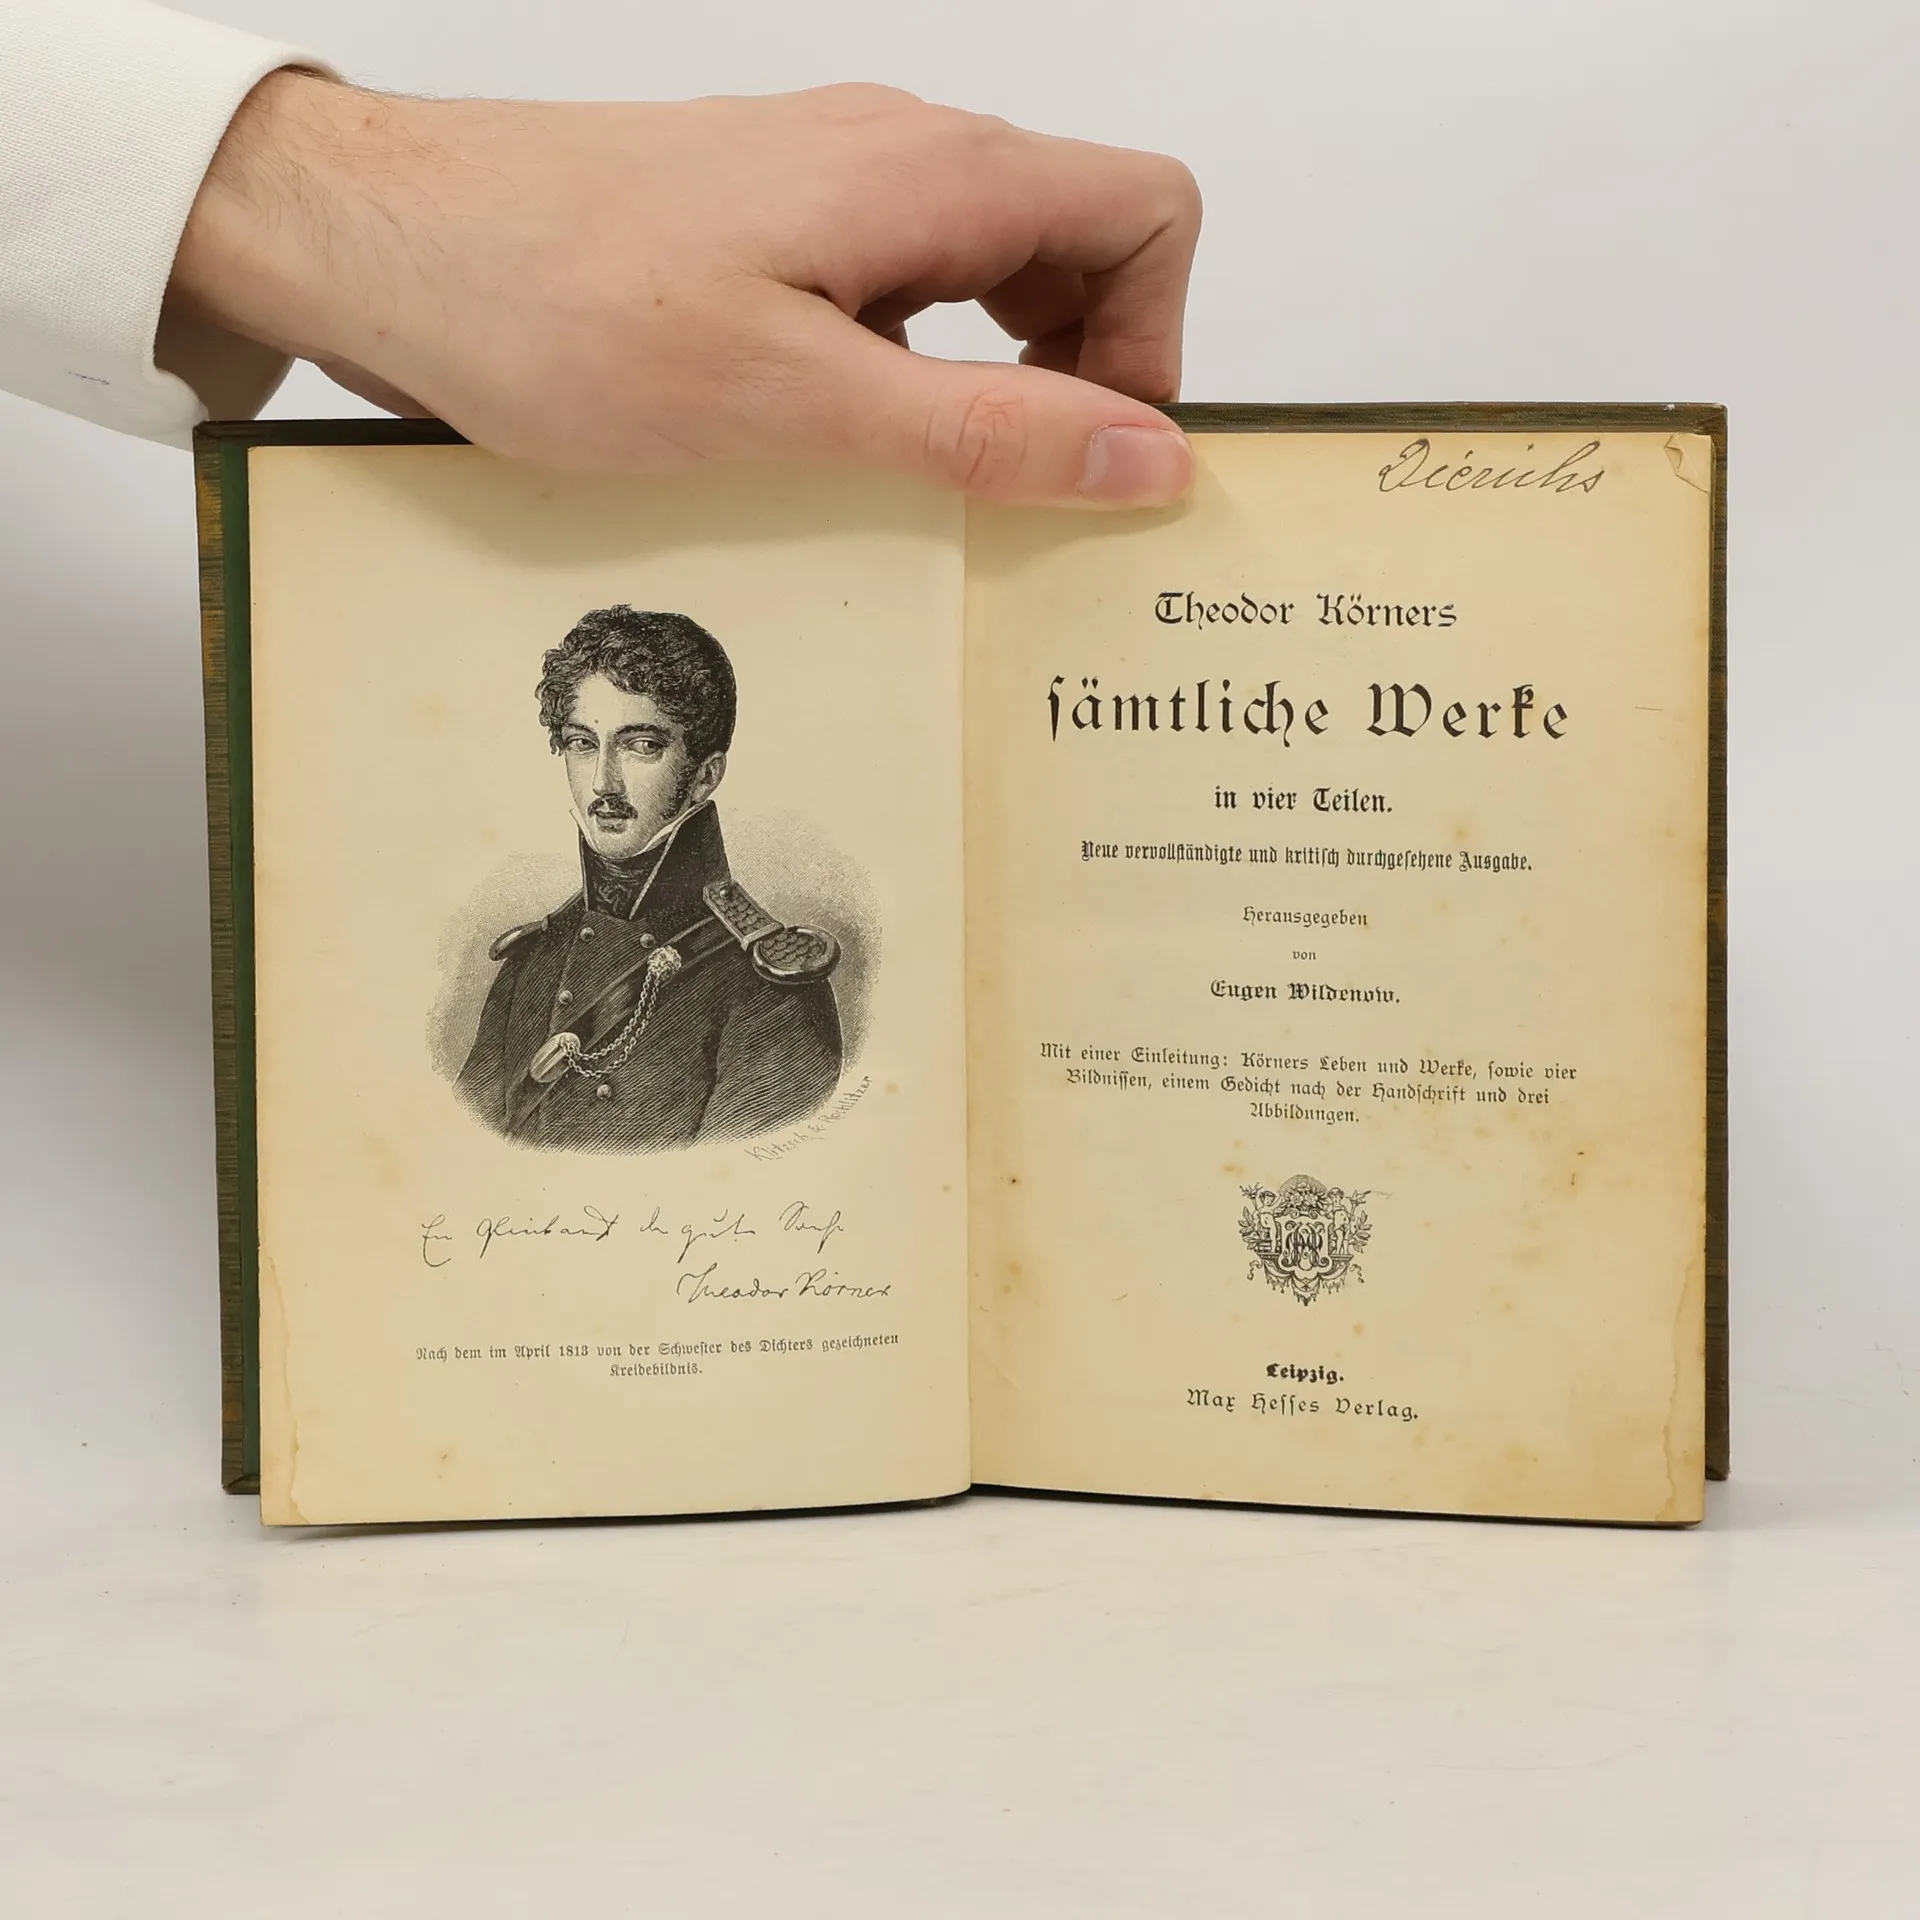 Klitzsch & Rochlitzer
Theodor Körner
Nach dem im April 1813 von der Schwester des Dichters gezeichneten
Kreidebildnis.
Dierichs
Theodor Körners
sämtliche Werke
in vier Teilen.
Neue vervollständigte und kritisch durchgesehene Ausgabe.
Herausgegeben
von
Eugen Wildenow.
Mit einer Einleitung: Körners Leben und Werke, sowie vier
Bildnissen, einem Gedicht nach der Handschrift und drei
Abbildungen.
Leipzig.
Max Hesses Verlag.